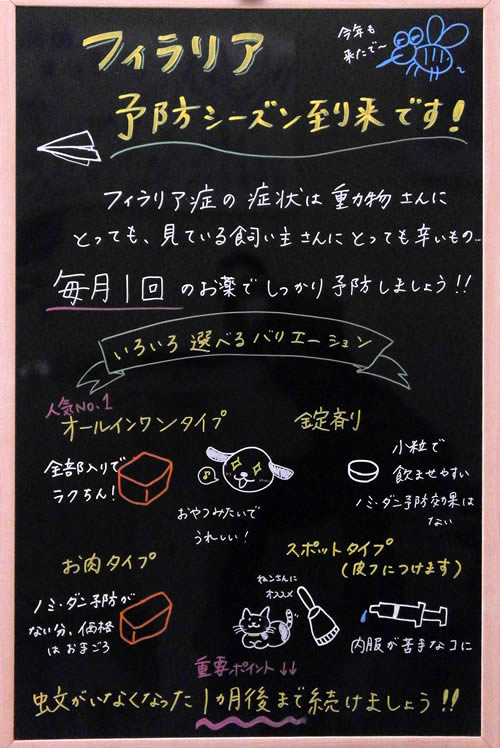 フィラリア
今年も
来たで～
予防シーズン到来です!
フィラリア症の症状は動物さんに
とっても、見ている飼い主さんにとっても辛いもの…
毎月1回のお薬でしっかり予防しましょう!!
いろいろ選べるバリエーション
人気NO.1
オールインワンタイプ
全部入りで
ラクちん!
おやつみたいで
うれしい!
錠剤
小粒で
飲ませやすい
ノミ・ダニ予防効果は
ない
お肉タイプ
ノミ・ダニ予防が
ない分、価格
はおまごろ
スポットタイプ
(皮フにつけます)
ねこさんに
オススメ
内服が苦手なコに
重要ポイント↓↓
虫文がいなくなった1カ月後まで続けましょう!!